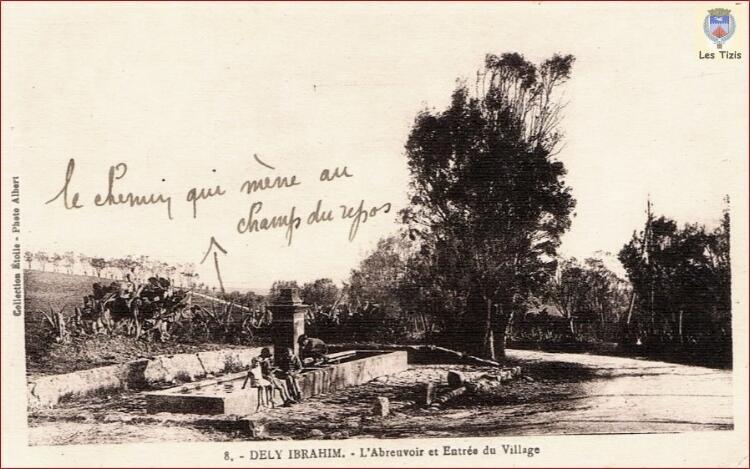 Les Tizis
le chemin qui mène au
champ du repos
Collection Étoile - Photo Albert
8. - DELY IBRAHIM. - L'Abreuvoir et Entrée du Village